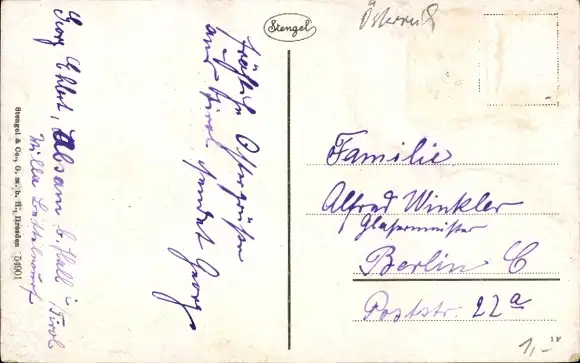 Stengel
Österreich
fröhliche Ostergrüße
aus Tirol sendet Georg
Georg Ehlert, Absam b. Hall i/Tirol
Villa
Stengel & Co., G. m. b. H., Dresden 54901
Familie
Alfred Winkler
Glasermeister
Berlin C
Poststr. 22a
1,-